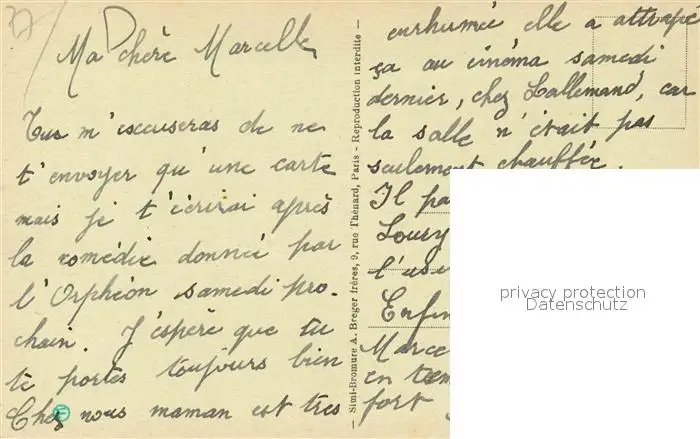 Ma chère Marcelle
Tu m'excuseras de ne
t'envoyer qu'une carte
mais je t'écrirai après
la comédie donnée par
l'Orphéon samedi pro-
chain. J'espère que tu
te portes toujours bien
Chez nous maman est très
enrhumée elle a attrapé
ça au cinéma samedi
dernier, chez Lallemand, car
la salle n'était pas
seulement chauffée.
Il pa
Loury
l'use
Enfin
Marce
en tem
fort
Simi-Bromure A. Breger frères, 9, rue Thénard, Paris - Reproduction interdite -
privacy protection
Datenschutz